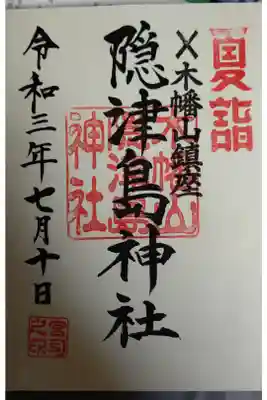 夏詣
✕木幡山鎮座
隠津島神社
令和三年七月十日
木幡山
隠津島
神社